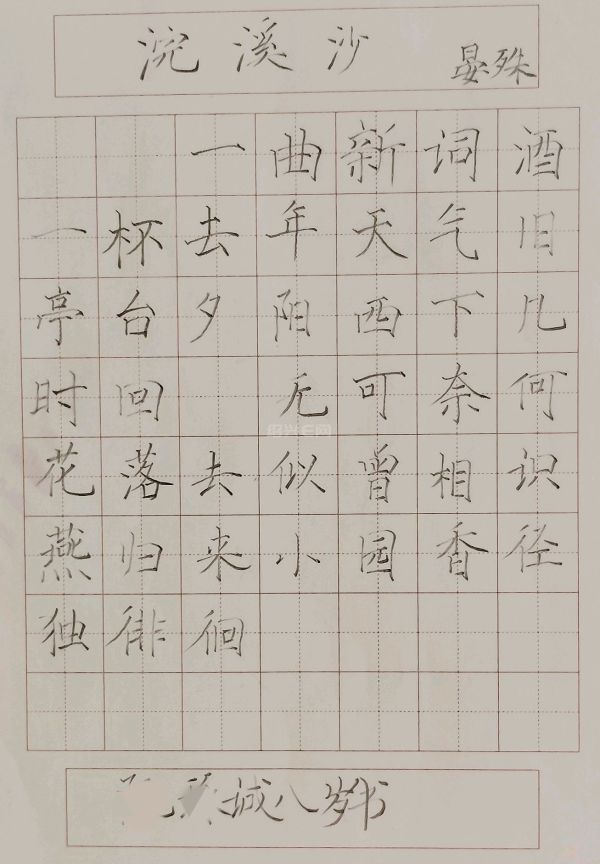 浣溪沙
晏殊
一曲新词酒
一杯去年天气旧
亭台夕阳西下几
时回 无可奈何
花落去似曾相识
燕归来小园香径
独徘徊
城八岁书